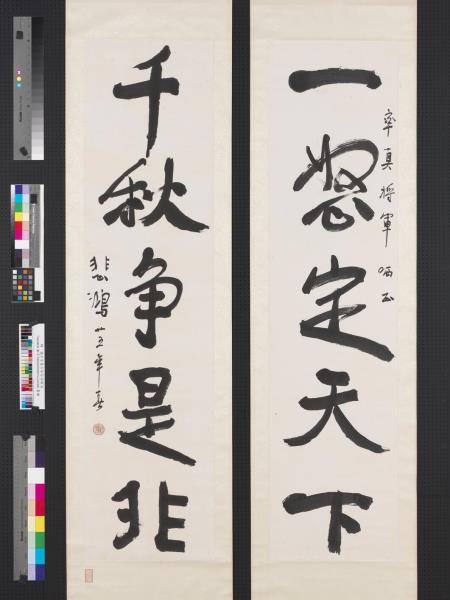 一怒定天下
率真將軍 哂正
千秋争是非
悲鴻 廿五年春